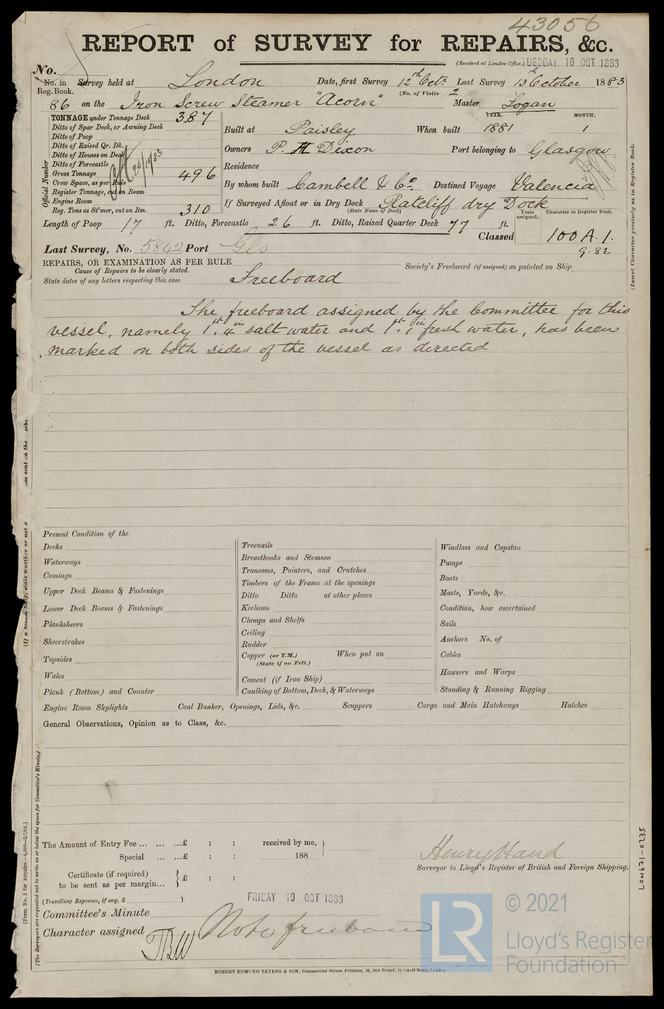 43056
REPORT of SURVEY for REPAIRS, &c.
(Received at London Office, TUESDAY 16 OCT 1883
No.
No. in Survey held at London Date, first Survey 12th Octr. Last Survey 15 October 1883
Reg. Book. (No. of Visits 2
86 on the Iron Screw Steamer "Acorn" Master Logan
TONNAGE under Tonnage Deck 387
Ditto of Spar Deck, or Awning Deck
Ditto of Poop
Ditto of Raised Qr. Dk.
Ditto of Houses on Deck
Ditto of Forecastle
Gross Tonnage 496
Crew Space, as per Rule
Register Tonnage, cut on Beam
Engine Room
Reg. Tons as St'mer, cut on Bm. 310
Official Number
YEAR. MONTH.
Built at Paisley When built 1881 1
Owners P. H Dixon Port belonging to Glasgow
Residence
By whom built Cambell & Co. Destined Voyage Valencia
If Surveyed Afloat or in Dry Dock Ratcliff dry Dock
(State Name of Dock) Years assigned. Character in Register Book.
Length of Poop 17 ft. Ditto, Forecastle 26 ft. Ditto, Raised Quarter Deck 77 ft.
Classed 100 A.1.
9.82
Last Survey, No. 5862 Port Gls
REPAIRS, OR EXAMINATION AS PER RULE
Cause of Repairs to be clearly stated.
Society's Freeboard (if assigned) as painted on Ship
State dates of any letters respecting this case Freeboard
The freeboard assigned by the Committee for this
vessel, namely salt water and fresh water, has been
marked on both sides of the vessel as directed
Present Condition of the
Decks
Waterways
Comings
Upper Deck Beams & Fastenings
Lower Deck Beams & Fastenings
Planksheers
Sheerstrakes
Topsides
Wales
Plank (Bottom) and Counter
Treenails
Breasthooks and Stemson
Transoms, Pointers, and Crutches
Timbers of the Frame at the openings
Ditto Ditto at other places
Keelsons
Clamps and Shelfs
Ceiling
Rudder
Copper (or Y.M.) When put on
(State if on Felt.)
Cement (if Iron Ship)
Caulking of Bottom, Deck, & Waterways
Windlass and Capstan
Pumps
Boats
Masts, Yards, &c.
Condition, how ascertained
Sails
Anchors No. of
Cables
Hawsers and Warps
Standing & Running Rigging
Engine Room Skylights Coal Bunker, Openings, Lids, &c. Scuppers Cargo and Main Hatchways Hatches
General Observations, Opinion as to Class, &c.
The Amount of Entry Fee ... ... ...£ : : received by me,
Special ... ...£ : : 188
Certificate (if required) to be sent as per margin... £ : :
(Travelling Expenses, if any, £ )
Henry Hand
Surveyor to Lloyd's Register of British and Foreign Shipping.
Committee's Minute FRIDAY 19 OCT 1883
Character assigned Note freeboard
TBW
ROBERT EDMUND TAYLOR & SON, Commercial Steam Printers, 19, Old Street, Goswell Road, London.
LON671-0235
© 2021
LR
Lloyd's Register
Foundation